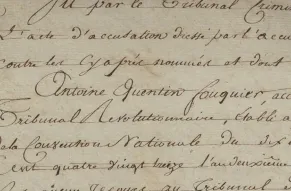 Vu par le Tribunal Crimi
L'acte d'accusation dressé par l'accu
contre les cy après nommés et dont
Antoine Quentin fouquier, acc
Tribunal Révolutionnaire, établi a
de la Convention Nationale du dix
cent quatre vingt treize l'an deuxième
au Tribunal d